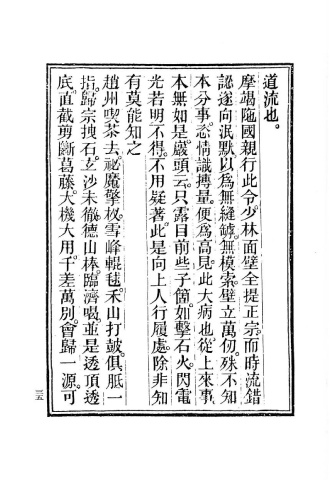 道流也。
摩竭陁國親行此令少林面壁全提正宗而時流錯
認遂向泯默以為無縫罅無模索壁立萬仞殊不知
本分事恣情識摶量便為高見此大病也從上來事
本無如是巖頭云只露目前些子箇如擊石火閃電
光若明不得不用疑著此是向上人行履處除非知
有莫能知之
趙州喫茶去祕魔擎杈雪峰輥毬禾山打皷俱胝一
指歸宗拽石玄沙未徹德山棒臨濟喝並是透頂透
底直截剪斷葛藤大機大用千差萬別會歸一源可
三五